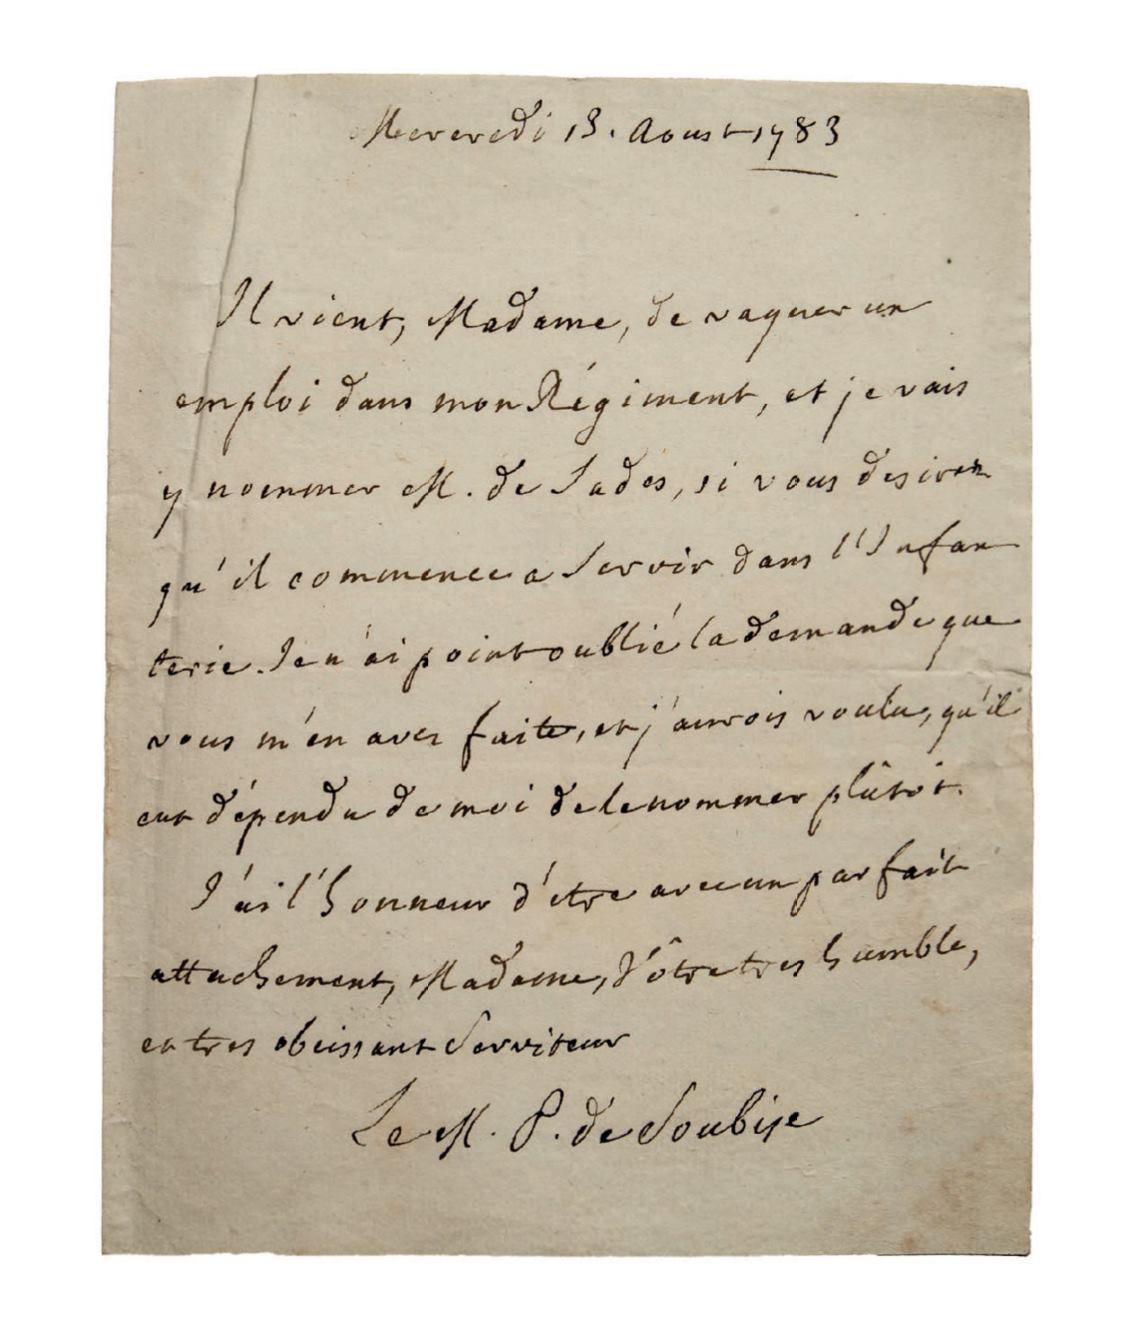 Mercredi 13. Aoust 1783
Il vient, Madame, de vaquer un
emploi dans mon Régiment, et je vais
y nommer M. de Sades, si vous desirez
qu'il commence a Servir dans l'Infan
terie. Je n'ai point oublié la demande que
vous m'en avez faite, et j'aurois voulu, qu'il
eut dépendu de moi de le nommer plûtot.
J'ai l'honneur d'etre avec un parfait
attachement, Madame, Vôtre tres humble,
et tres obeissant Serviteur
Le M. P. de Soubise